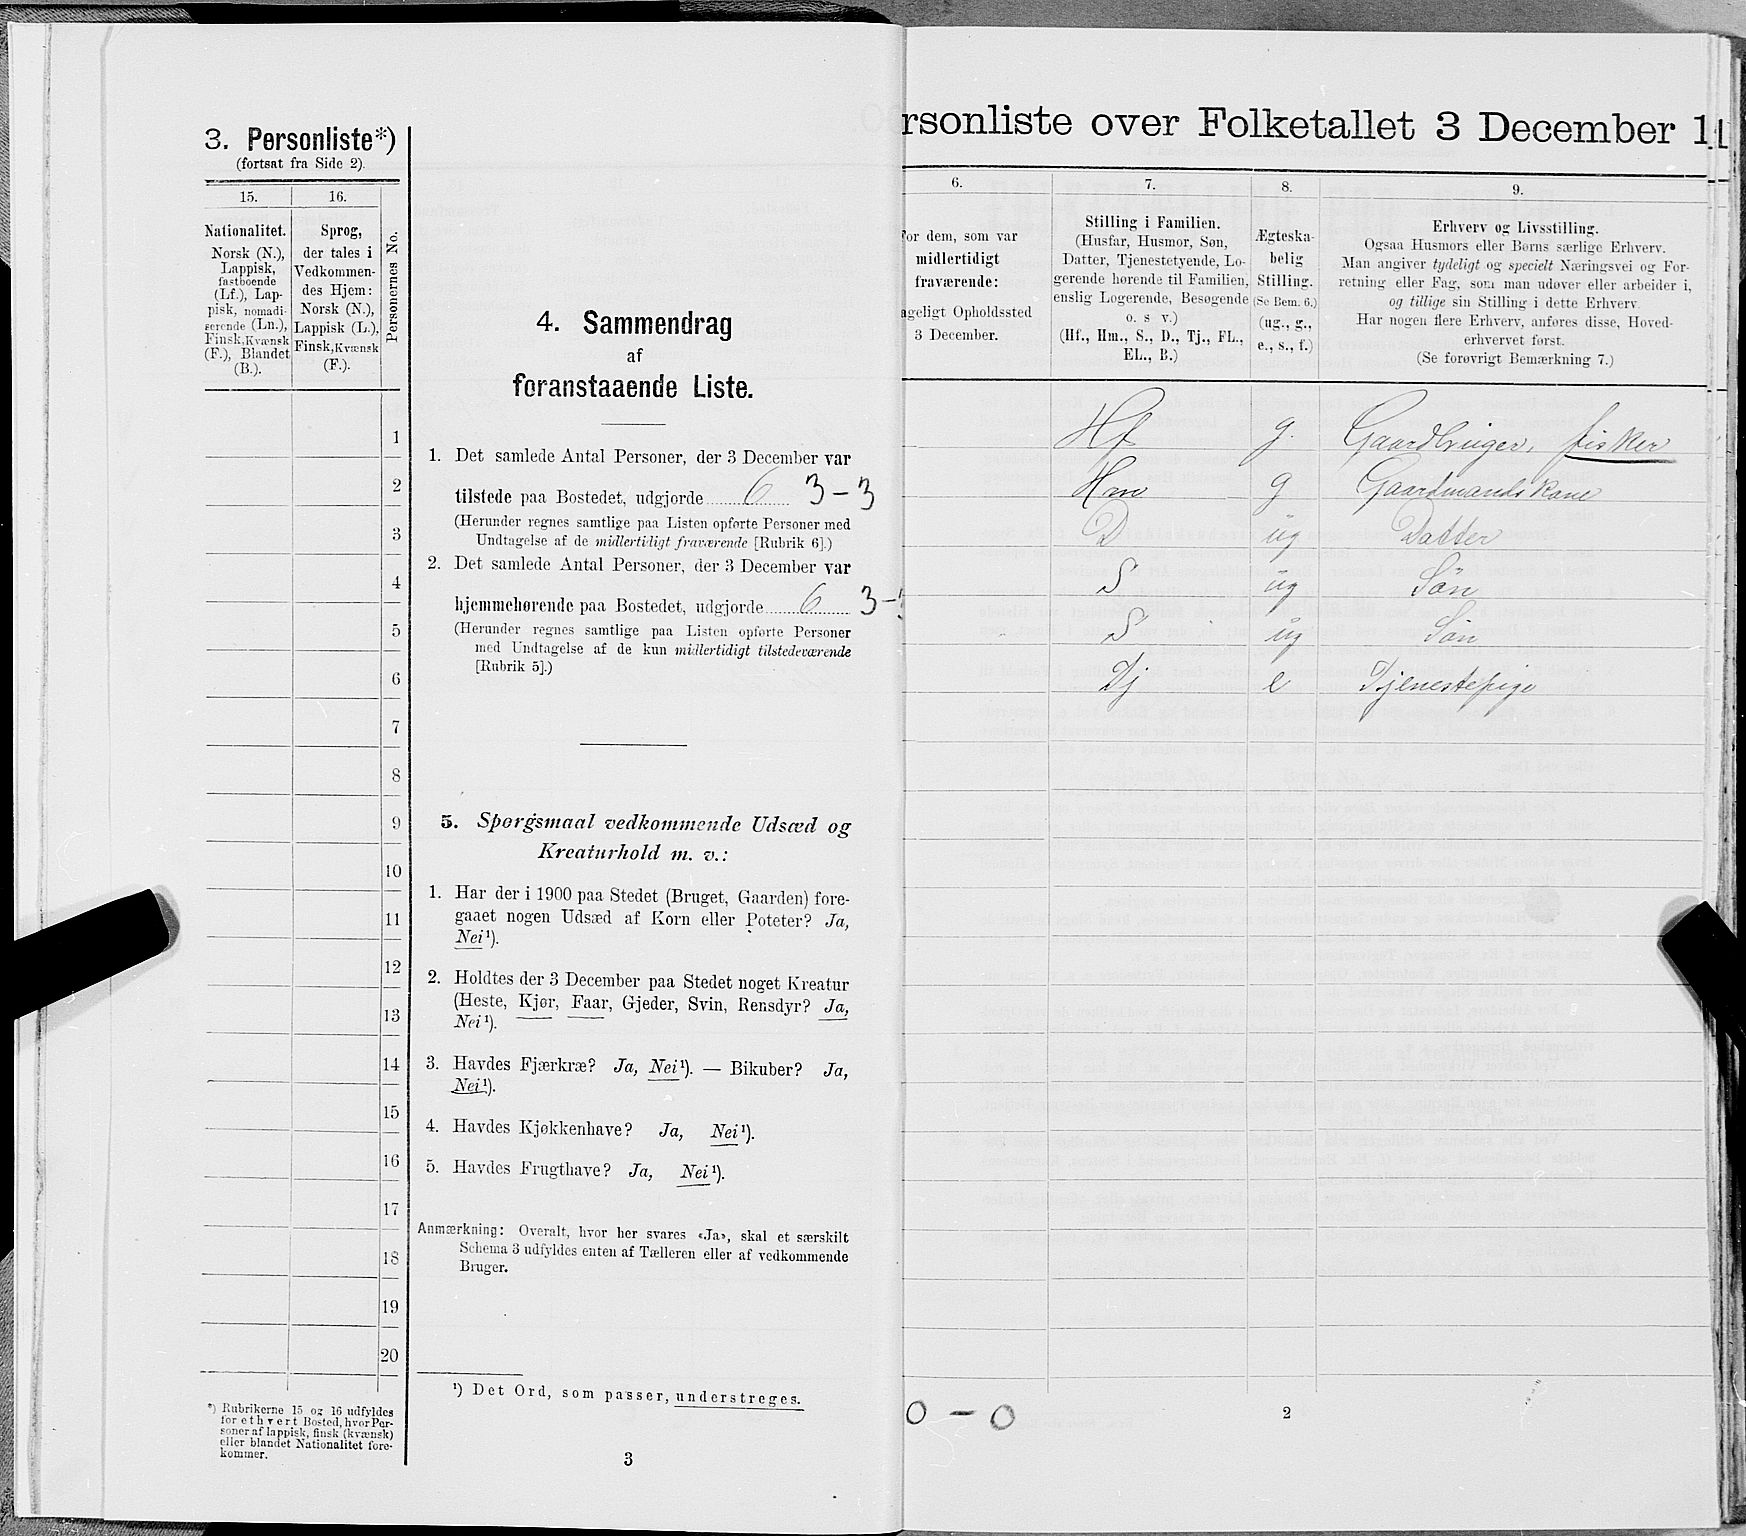 3. Personliste*)
(fortsat fra Side 2).
15.
16.
Nationalitet.
Norsk (N.),
Lappisk,
fastboende
(Lf.), Lap-
pisk, nomadi-
serende (Ln.),
Finsk, Kvænsk
(F.), Blandet
(B.).
Sprog,
der tales i
Vedkommen-
des Hjem:
Norsk (N.),
Lappisk (L.),
Finsk, Kvænsk
(F.).
Personernes No.
1
2
3
4
5
6
7
8
9
10
11
12
13
14
15
16
17
18
19
20
*) Rubrikerne 15 og 16 udfyldes
for ethvert Bosted, hvor Per-
soner af lappisk, finsk (kvænsk)
eller blandet Nationalitet fore-
kommer.
4. Sammendrag
af
foranstaaende Liste.
1. Det samlede Antal Personer, der 3 December var
tilstede paa Bostedet, udgjorde 6 3-3
(Herunder regnes samtlige paa Listen opførte Personer med
Undtagelse af de midlertidigt fraværende [Rubrik 6].)
2. Det samlede Antal Personer, der 3 December var
hjemmehørende paa Bostedet, udgjorde 6 3-
(Herunder regnes samtlige paa Listen opførte Personer
med Undtagelse af de kun midlertidigt tilstedeværende
[Rubrik 5].)
5. Spørgsmaal vedkommende Udsæd og
Kreaturhold m. v.:
1. Har der i 1900 paa Stedet (Bruget, Gaarden) fore-
gaaet nogen Udsæd af Korn eller Poteter? Ja,
Nei¹).
2. Holdtes der 3 December paa Stedet noget Kreatur
(Heste, Kjør, Faar, Gjeder, Svin, Rensdyr? Ja,
Nei¹).
3. Havdes Fjærkræ? Ja, Nei¹). — Bikuber? Ja,
Nei¹).
4. Havdes Kjøkkenhave? Ja, Nei¹).
5. Havdes Frugthave? Ja, Nei¹).
Anmærkning: Overalt, hvor her svares «Ja», skal et særskilt
Schema 3 udfyldes enten af Tælleren eller af vedkommende
Bruger.
¹) Det Ord, som passer, understreges.
3
rsonliste over Folketallet 3 December 1
6.
7.
8.
9.
For dem, som var
midlertidigt
fraværende:
ageligt Opholdssted
3 December.
Stilling i Familien.
(Husfar, Husmor, Søn,
Datter, Tjenestetyende, Lo-
gerende hørende til Familien,
enslig Logerende, Besøgende
o. s v.)
(Hf., Hm., S., D., Tj., FL.,
EL., B.)
Ægteska-
belig
Stilling.
(Se Bem. 6.)
(ug., g.,
e., s., f.)
Erhverv og Livsstilling.
Ogsaa Husmors eller Børns særlige Erhverv.
Man angiver tydeligt og specielt Næringsvei og For-
retning eller Fag, som man udøver eller arbeider i,
og tillige sin Stilling i dette Erhverv.
Har nogen flere Erhverv, anføres disse, Hoved-
erhvervet først.
(Se forøvrigt Bemærkning 7.)
Hf g. Gaardbruger, fisker
Hm g Gaardmandskone
D ug Datter
S ug Søn
S ug Søn
Tj e Tjenestepige
0 - 0
2